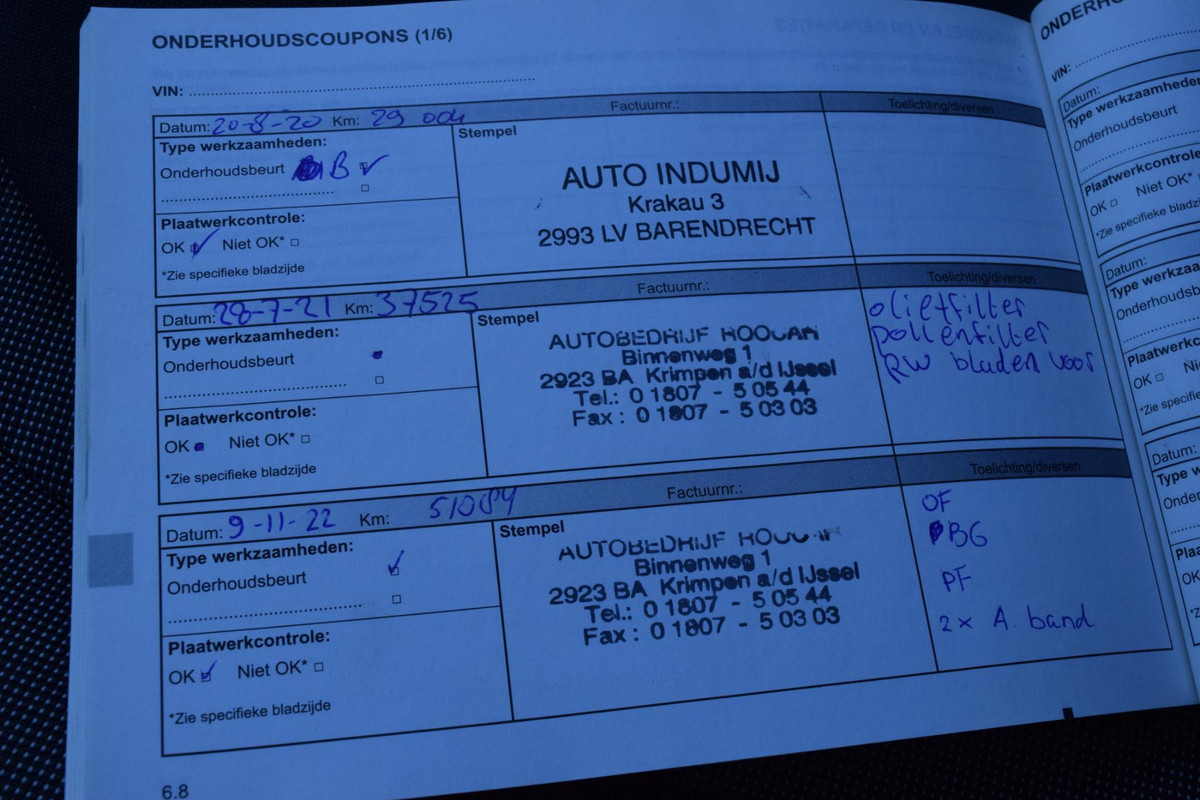 ONDERHOUDSCOUPONS (1/6)
VIN:
Datum: 20-8-20 Km: 29 004 Factuurnr.: Toelichting/diversen
Type werkzaamheden:
Onderhoudsbeurt B
Stempel
AUTO INDUMIJ
Krakau 3
2993 LV BARENDRECHT
Plaatwerkcontrole:
OK Niet OK*
*Zie specifieke bladzijde
Datum: 28-7-21 Km: 37525 Factuurnr.: Toelichting/diversen
Type werkzaamheden:
Onderhoudsbeurt
Stempel
AUTOBEDRIJF
Binnenweg 1
2923 BA Krimpen a/d IJssel
Tel.: 0 1807 - 5 05 44
Fax : 0 1807 - 5 03 03
olietfilter
pollenfilter
RW bladen voor
Plaatwerkcontrole:
OK Niet OK*
*Zie specifieke bladzijde
Datum: 9-11-22 Km: 51084 Factuurnr.: Toelichting/diversen
Type werkzaamheden:
Onderhoudsbeurt
Stempel
AUTOBEDRIJF
Binnenweg 1
2923 BA Krimpen a/d IJssel
Tel.: 0 1807 - 5 05 44
Fax : 0 1807 - 5 03 03
OF
BG
PF
2x A. band
Plaatwerkcontrole:
OK Niet OK*
*Zie specifieke bladzijde
6.8
VIN:
Datum:
Type werkzaamheden
Onderhoudsbeurt
Plaatwerkcontrole
OK Niet OK*
*Zie specifieke
Datum:
Datum: